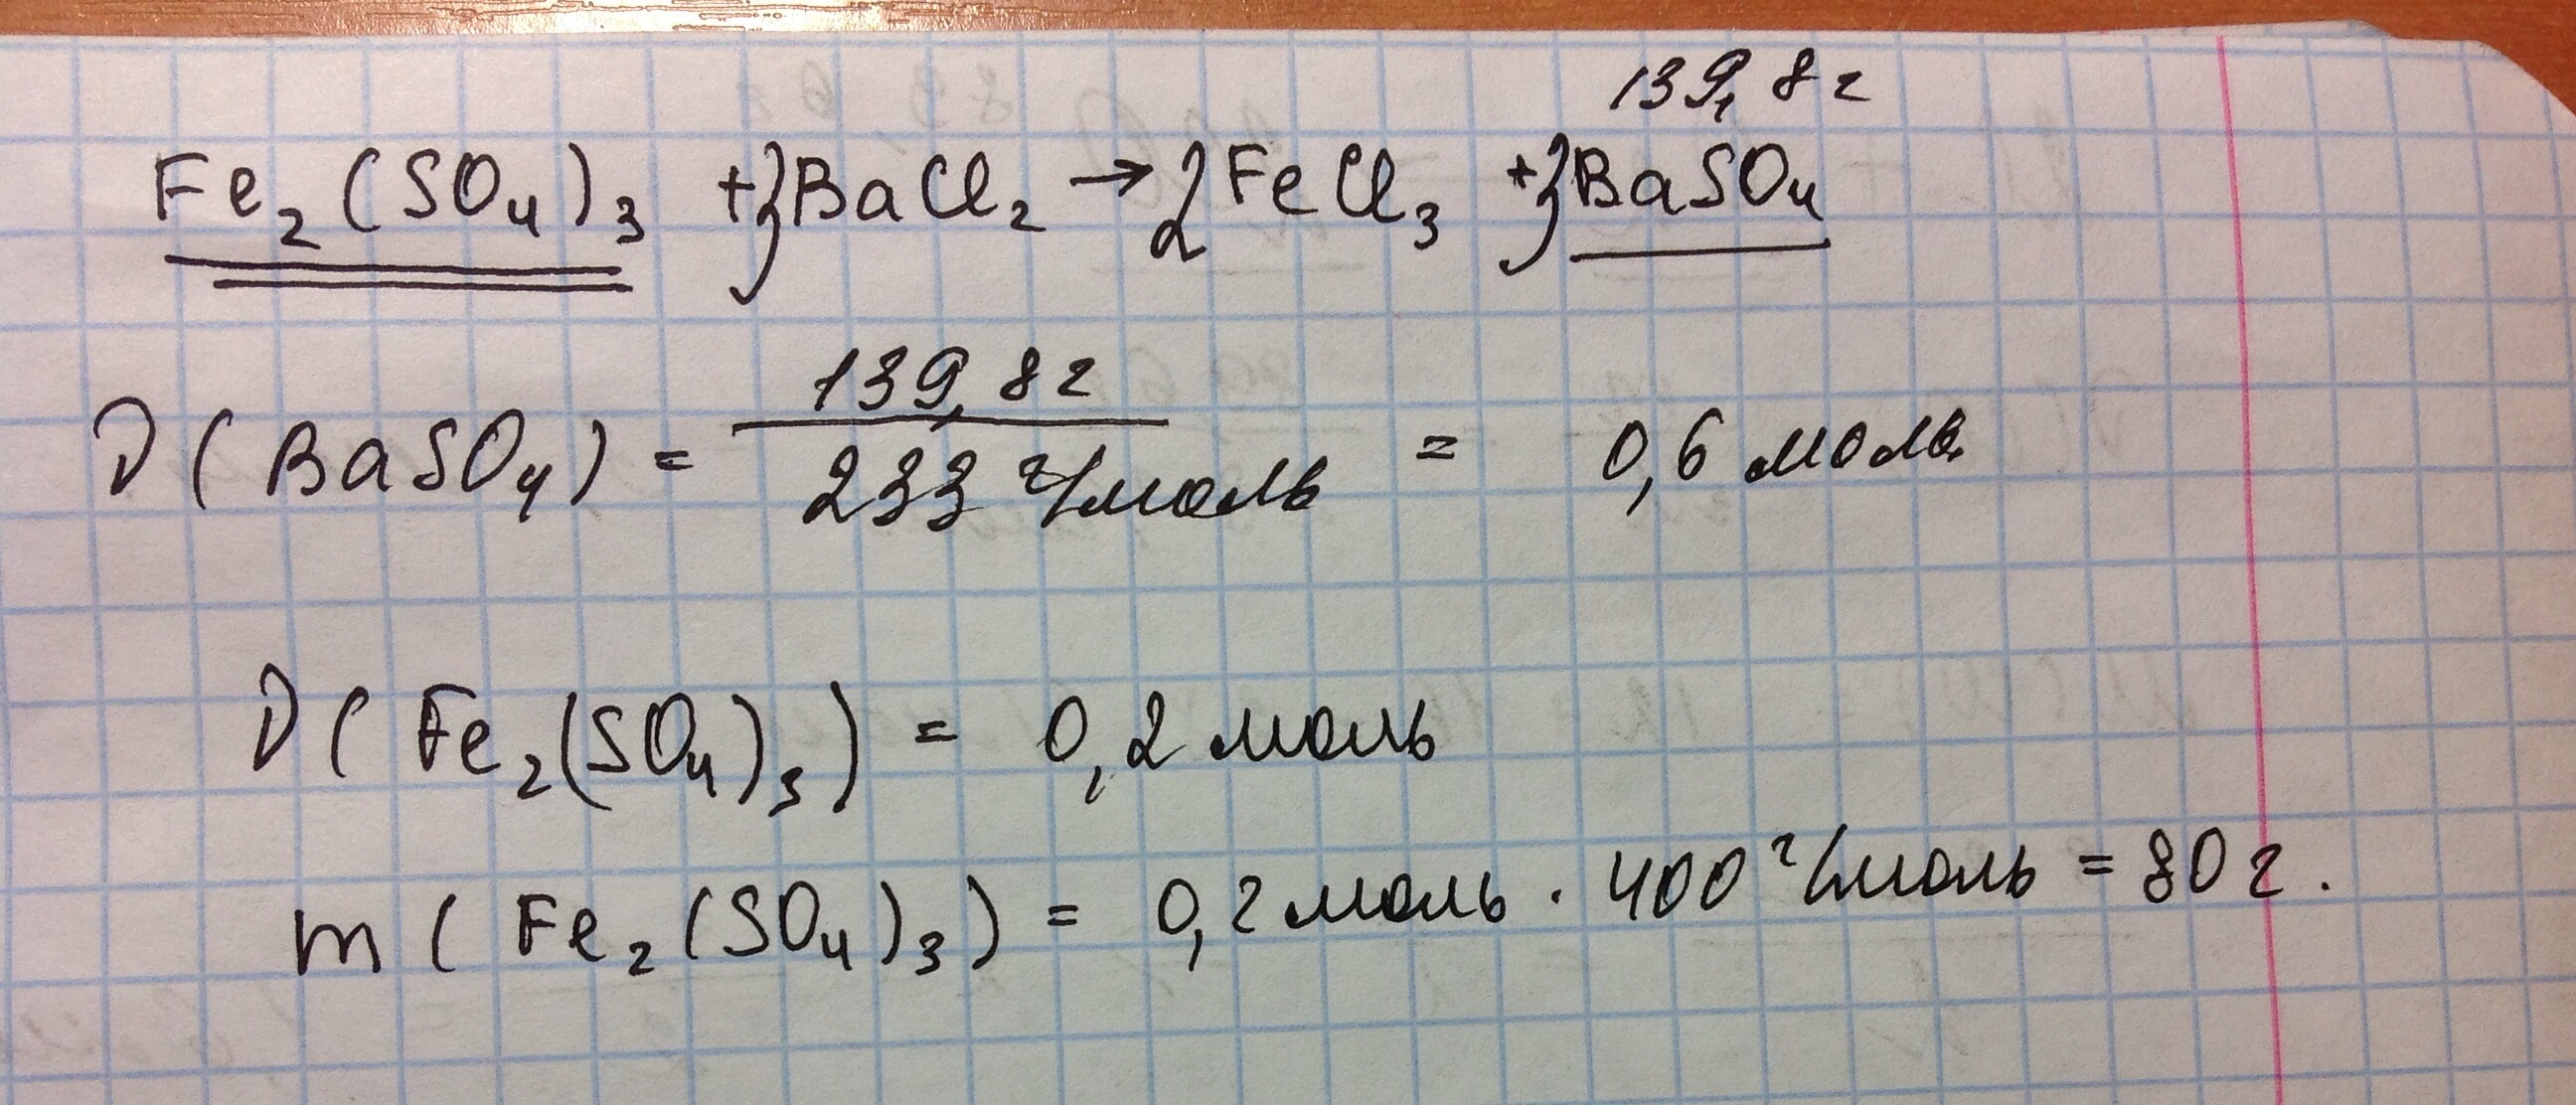 139,8г
Fe₂(SO₄)₃ +3BaCl₂ → 2FeCl₃ +3BaSO₄
139,8г
ν(BaSO₄) = ──── = 0,6 моль.
233 г/моль
ν(Fe₂(SO₄)₃) = 0,2 моль
m(Fe₂(SO₄)₃) = 0,2 моль · 400 г/моль = 80г.